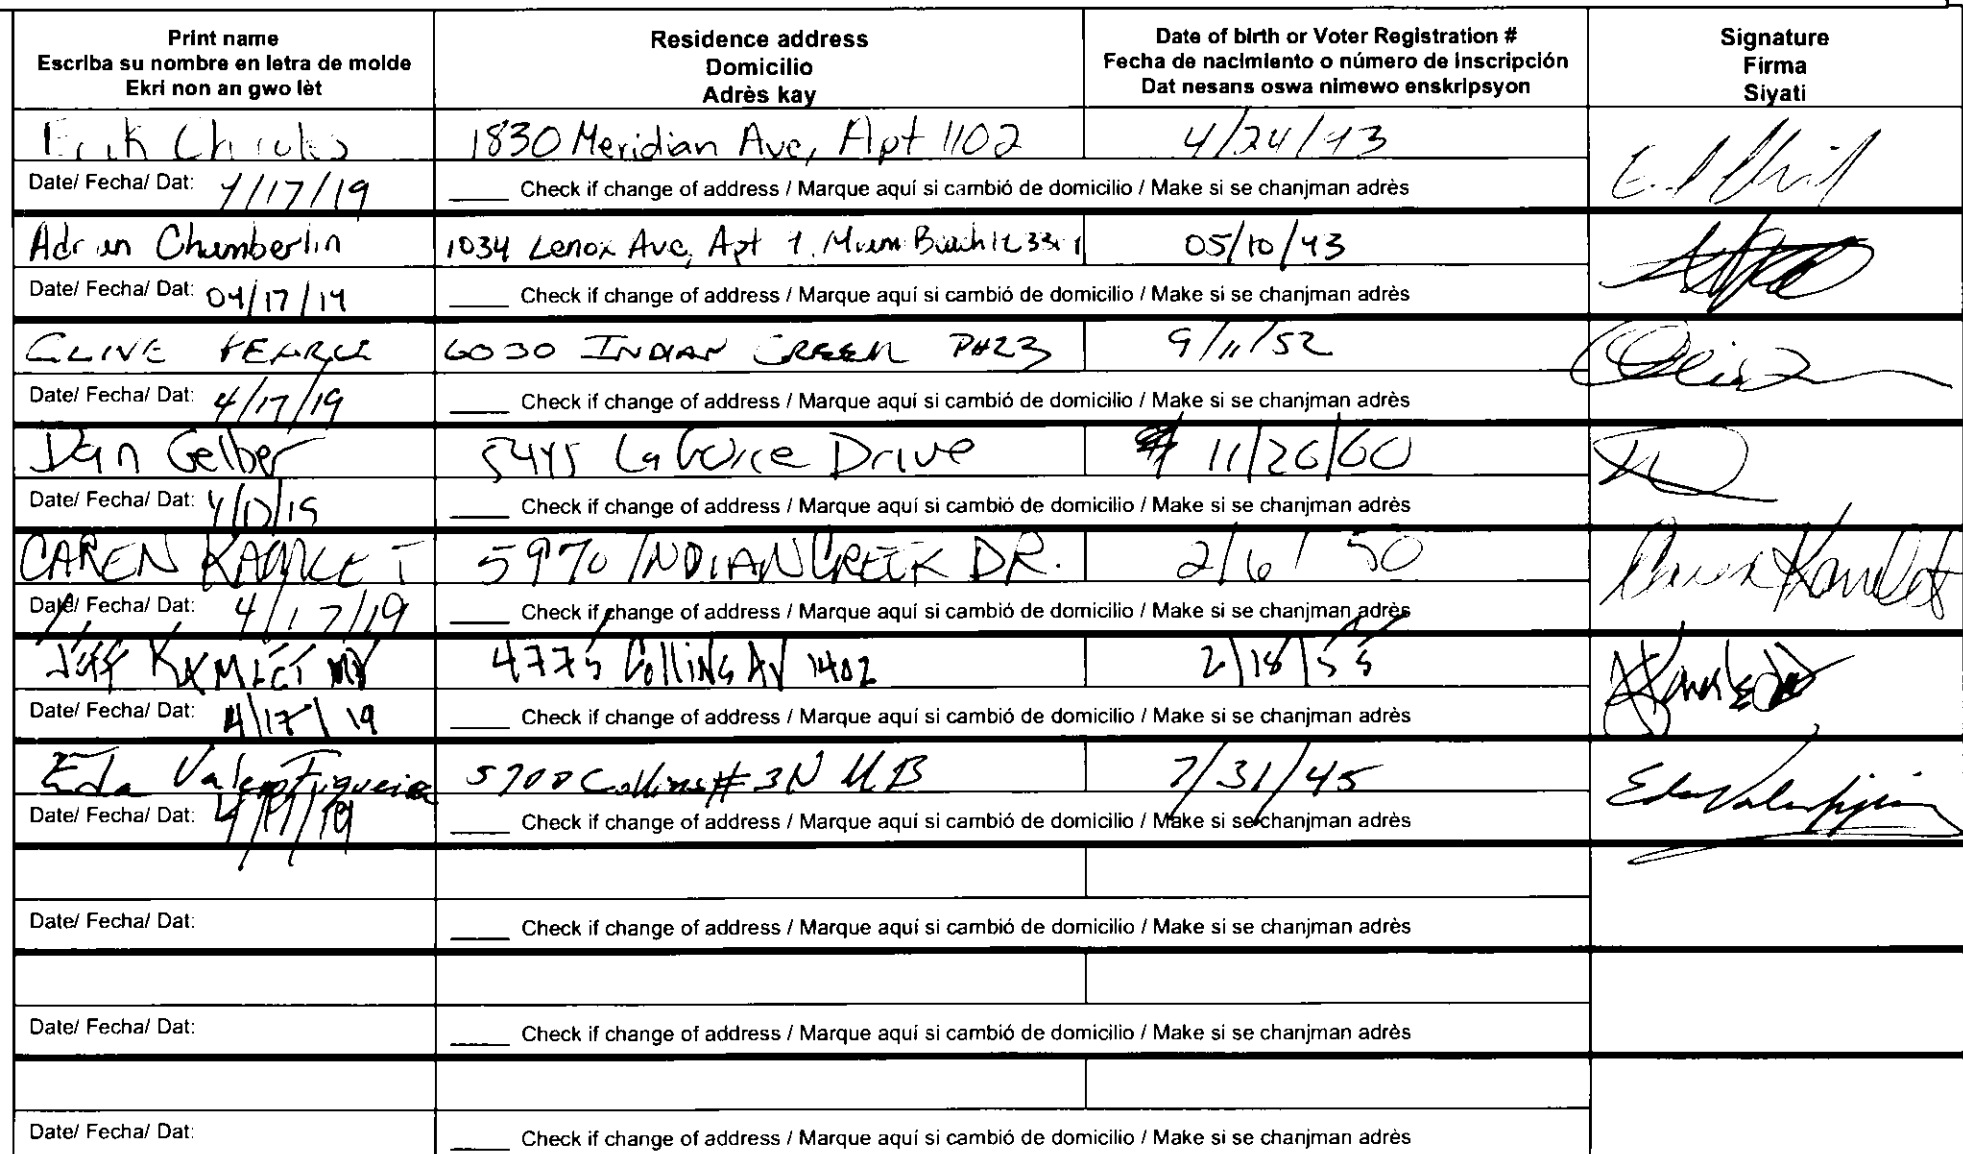 Print name
Escriba su nombre en letra de molde
Ekri non an gwo lèt
Residence address
Domicilio
Adrès kay
Date of birth or Voter Registration #
Fecha de nacimiento o número de inscripción
Dat nesans oswa nimewo enskripsyon
Signature
Firma
Siyati
1830 Meridian Ave, Apt 1102 4/24/93
Date/ Fecha/ Dat: 4/17/19 ____ Check if change of address / Marque aquí si cambió de domicilio / Make si se chanjman adrès
Chamberlin 1034 Lenox Ave, Apt
Date/ Fecha/ Dat: 04/17/19 ____ Check if change of address / Marque aquí si cambió de domicilio / Make si se chanjman adrès
CLIVE 6030 INDIAN CREEK PH23 9/11/52
Date/ Fecha/ Dat: 4/17/19 ____ Check if change of address / Marque aquí si cambió de domicilio / Make si se chanjman adrès
Dan Gelber 5445 La Gorce Drive # 11/26/60
Date/ Fecha/ Dat: 4/17/19 ____ Check if change of address / Marque aquí si cambió de domicilio / Make si se chanjman adrès
CAREN KAMLET 5970 INDIAN CREEK DR. 2/6/50 Caren Kamlet
Date/ Fecha/ Dat: 4/17/19 ____ Check if change of address / Marque aquí si cambió de domicilio / Make si se chanjman adrès
JEFF KAMLET MD 4775 Collins AV 1402 2/18/55
Date/ Fecha/ Dat: 4/17/19 ____ Check if change of address / Marque aquí si cambió de domicilio / Make si se chanjman adrès
Eda Valero Figueira 5700 Collins #3N M B 7/31/45
Date/ Fecha/ Dat: 4/17/19 ____ Check if change of address / Marque aquí si cambió de domicilio / Make si se chanjman adrès
Date/ Fecha/ Dat: ____ Check if change of address / Marque aquí si cambió de domicilio / Make si se chanjman adrès
Date/ Fecha/ Dat: ____ Check if change of address / Marque aquí si cambió de domicilio / Make si se chanjman adrès
Date/ Fecha/ Dat: ____ Check if change of address / Marque aquí si cambió de domicilio / Make si se chanjman adrès